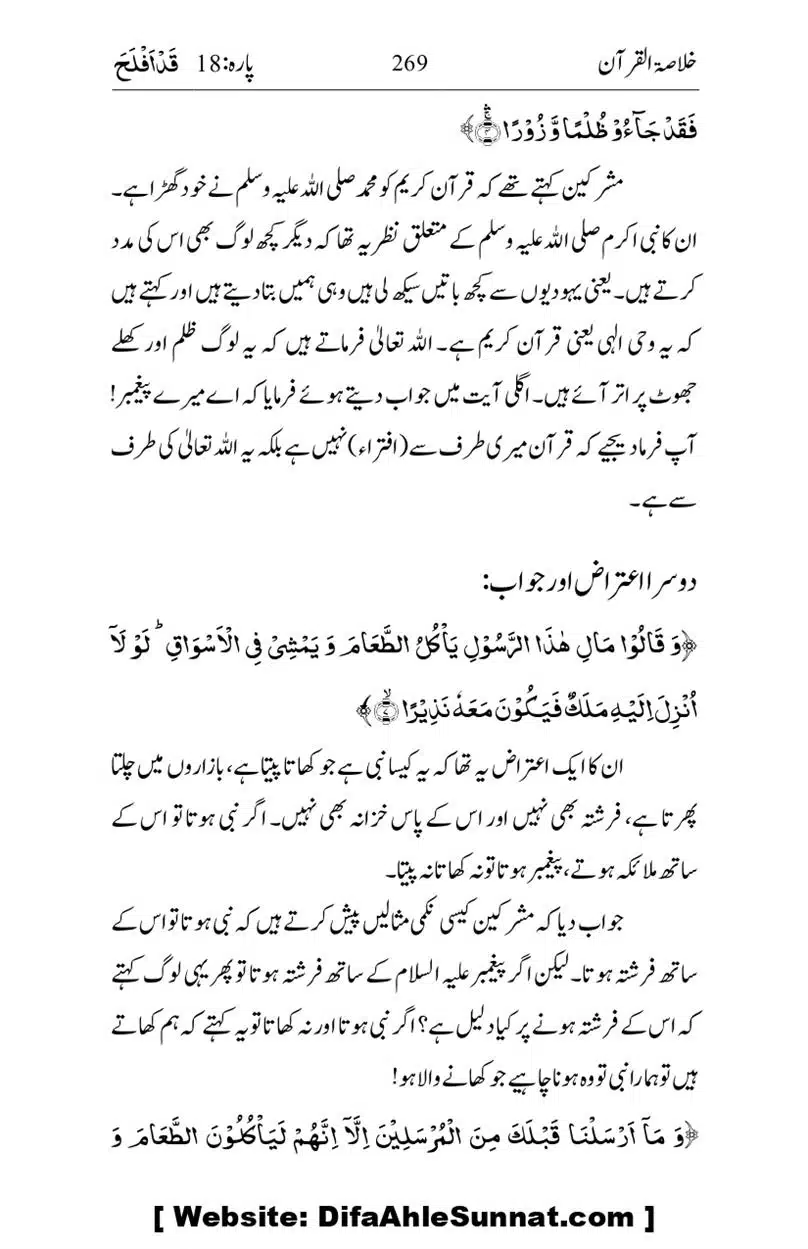 خلاصۃ القرآن 269 پارہ:18 قَدْ اَفْلَحَ
فَقَدْ جَآءُوْ ظُلْمًا وَّ زُوْرًا ﴿۴﴾﴾
مشرکین کہتے تھے کہ قرآن کریم کو محمد صلی اللہ علیہ وسلم نے خود گھڑا ہے۔
ان کا نبی اکرم صلی اللہ علیہ وسلم کے متعلق نظریہ تھا کہ دیگر کچھ لوگ بھی اس کی مدد
کرتے ہیں۔ یعنی یہودیوں سے کچھ باتیں سیکھ لی ہیں وہی ہمیں بتا دیتے ہیں اور کہتے ہیں
کہ یہ وحی الٰہی یعنی قرآن کریم ہے۔ اللہ تعالیٰ فرماتے ہیں کہ یہ لوگ ظلم اور کھلے
جھوٹ پر اتر آئے ہیں۔ اگلی آیت میں جواب دیتے ہوئے فرمایا کہ اے میرے پیغمبر!
آپ فرما دیجیے کہ قرآن میری طرف سے (افتراء) نہیں ہے بلکہ یہ اللہ تعالیٰ کی طرف
سے ہے۔
دوسرا اعتراض اور جواب:
﴿وَ قَالُوْا مَالِ هٰذَا الرَّسُوْلِ يَاْكُلُ الطَّعَامَ وَ يَمْشِيْ فِي الْاَسْوَاقِ ؕ لَوْ لَاۤ
اُنْزِلَ اِلَيْهِ مَلَكٌ فَيَكُوْنَ مَعَهٗ نَذِيْرًا ۙ﴿۷﴾﴾
ان کا ایک اعتراض یہ تھا کہ یہ کیسا نبی ہے جو کھاتا پیتا ہے، بازاروں میں چلتا
پھرتا ہے، فرشتہ بھی نہیں اور اس کے پاس خزانہ بھی نہیں۔ اگر نبی ہوتا تو اس کے
ساتھ ملائکہ ہوتے، پیغمبر ہوتا تو نہ کھاتا نہ پیتا۔
جواب دیا کہ مشرکین کیسی نکمی مثالیں پیش کرتے ہیں کہ نبی ہوتا تو اس کے
ساتھ فرشتہ ہوتا۔ لیکن اگر پیغمبر علیہ السلام کے ساتھ فرشتہ ہوتا تو پھر یہی لوگ کہتے
کہ اس کے فرشتہ ہونے پر کیا دلیل ہے؟ اگر نبی ہوتا اور نہ کھاتا تو یہ کہتے کہ ہم کھاتے
ہیں تو ہمارا نبی تو وہ ہونا چاہیے جو کھانے والا ہو!
﴿وَ مَاۤ اَرْسَلْنَا قَبْلَكَ مِنَ الْمُرْسَلِيْنَ اِلَّاۤ اِنَّهُمْ لَيَاْكُلُوْنَ الطَّعَامَ وَ
[ Website: DifaAhleSunnat.com ]